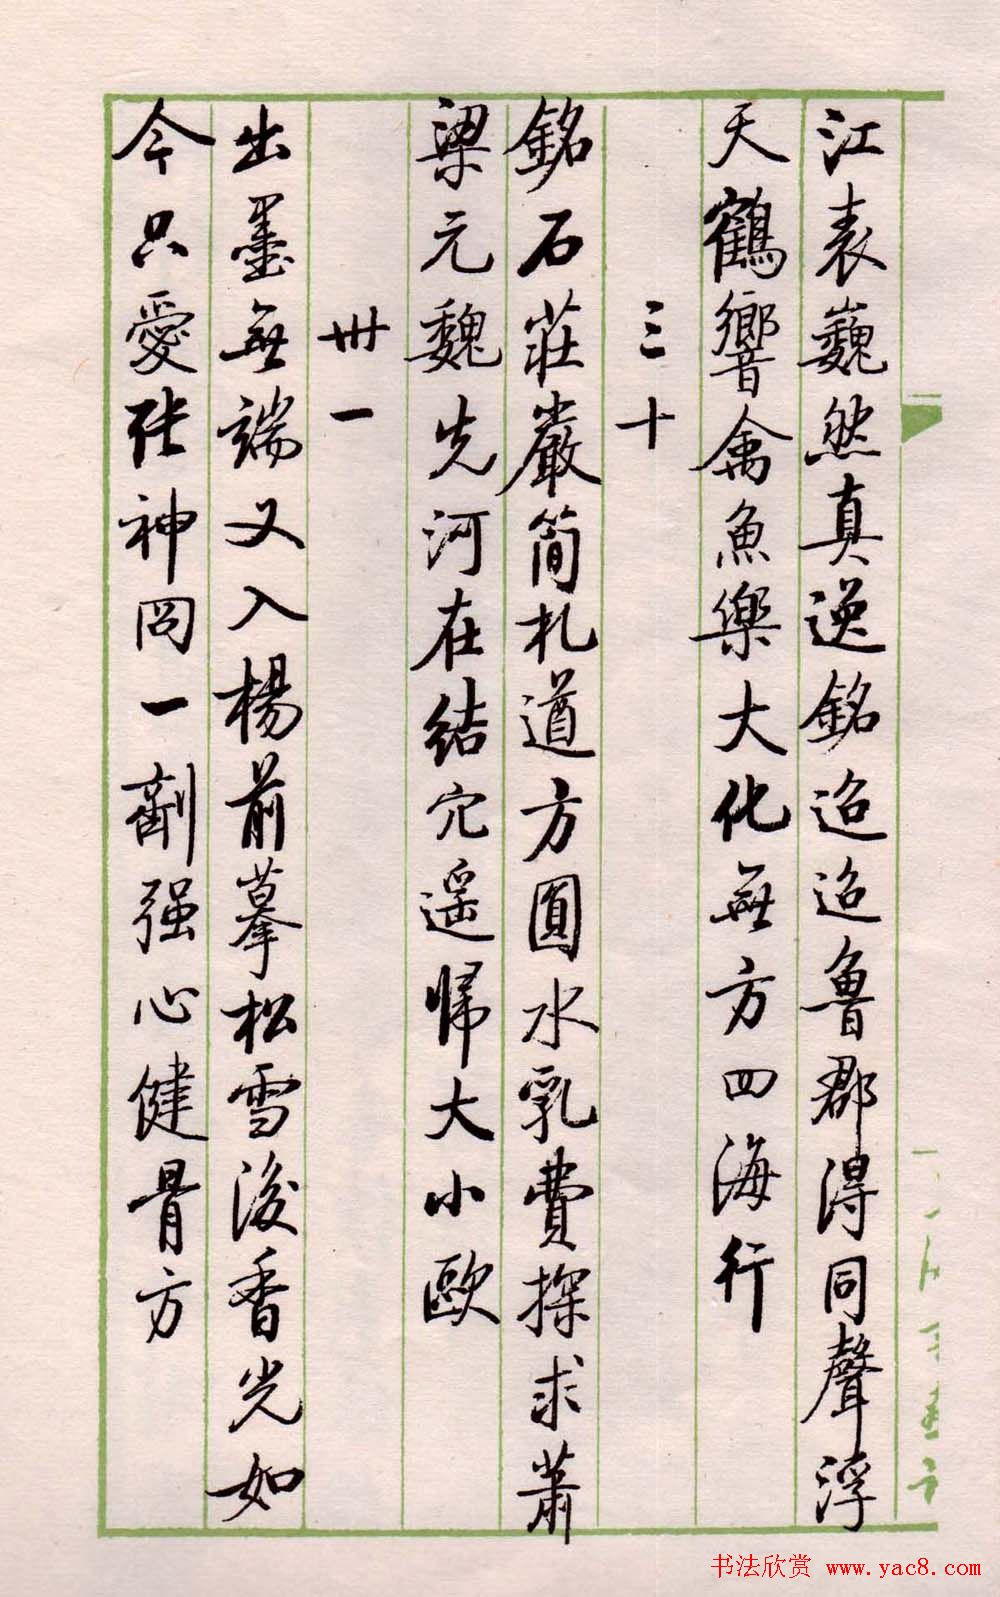 江表巍然真逸銘迢迢魯郡得同聲浮
天鶴響禽魚樂大化無方四海行
三十
銘石莊嚴簡札遒方圓水乳費探求蕭
梁元魏先河在結穴遥歸大小歐
卅一
出墨無端又入楊前摹松雪後香光如
今只愛張神冏一劑强心健骨方
书法欣赏 www.yac8.com